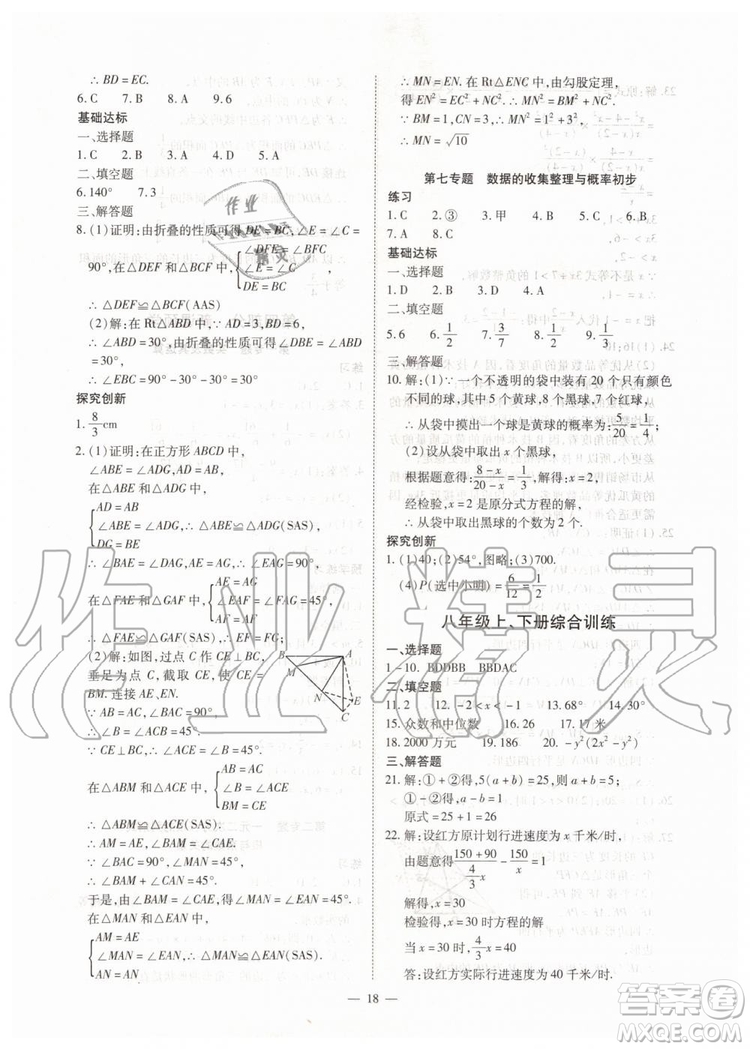 ∴ BD = EC.
6. C 7. B 8. A 9. 6
基础达标
一、选择题
1. C 2. B 3. D 4. C 5. A
二、填空题
6. 140° 7. 3
三、解答题
8. (1)证明:由折叠的性质可得 DE = BC, ∠E = ∠C =
90°,在△DEF 和△BFC 中 { ∠DFE = ∠BFC
∠E = ∠C
DE = BC
∴ △DEF ≌ △BCF(AAS)
(2)解:在 Rt△ABD 中, ∵ AD = 3, BD = 6, ∴
∠ABD = 30°,由折叠的性质可得 ∠DBE = ∠ABD
= 30°, ∴ ∠EBC = 90° - 30° - 30° = 30°.
探究创新
1. 8/3 cm
2. (1)证明:在正方形 ABCD 中,
∠ABE = ∠ADG, AD = AB,
在△ABE 和△ADG 中,
{ AD = AB
∠ABE = ∠ADG, ∴ △ABE ≌ △ADG(SAS),
DG = BE
∴ ∠BAE = ∠DAG, ∴ ∠EAG = 90°,
在△FAE 和△GAF 中, { AE = AG
∠EAF = ∠FAG = 45°,
AF = AF
∴ △FAE ≌ △GAF(SAS), ∴ EF = FG;
(2)解:如图,过点 C 作 CE ⊥ BC,
垂足为点 C,截取 CE,使 CE =
BM.连接 AE, EN.
∵ AB = AC, ∠BAC = 90°,
∴ ∠B = ∠ACB = 45°.
∵ CE ⊥ BC, ∴ ∠ACE = ∠B = 45°.
在△ABM 和△ACE 中 { AB = AC
∠B = ∠ACE
BM = CE
∴ △ABM ≌ △ACE(SAS).
∴ AM = AE, ∠BAM = ∠CAE.
∵ ∠BAC = 90°, ∠MAN = 45°,
∴ ∠BAM + ∠CAN = 45°.
于是,由 ∠BAM = ∠CAE,得 ∠MAN = ∠EAN = 45°.
在△MAN 和△EAN 中,
{ AM = AE
∠MAN = ∠EAN ∴ △MAN ≌ △EAN(SAS).
AN = AN
∴ MN = EN.在 Rt△ENC 中,由勾股定理,
得 EN² = EC² + NC². ∴ MN² = BM² + NC².
∵ BM = 1, CN = 3, ∴ MN² = 1² + 3²,
∴ MN = √10
第七专题 数据的收集整理与概率初步
练习
1. C 2. ③ 3. 甲 4. C 5. C 6. B
7. A 8. C
基础达标
一、选择题
1. C 2. A 3. B 4. A
二、填空题
5. 6 6. 1/2 7. 2/3 8. 1/3 9. 1/2
三、解答题
10. 解:(1) ∵ 一个不透明的袋中装有 20 个只有颜色
不同的球,其中 5 个黄球,8 个黑球,7 个红球,
∴ 从袋中摸出一个球是黄球的概率为: 5/20 = 1/4;
(2)设从袋中取出 x 个黑球,
根据题意得: (8 - x)/(20 - x) = 1/3,解得:x = 2,
经检验,x = 2 是原分式方程的解,
∴ 从袋中取出黑球的个数为 2 个.
探究创新
1. (1)40;(2)54°,图略;(3)700.
(4)P(选中小明) = 6/12 = 1/2
八年级上、下册综合训练
一、选择题
1 - 10. BDDBB BBDAC
二、填空题
11. 2 12. -2 < x < -1 13. 68° 14. 30°
15. 众数和中位数 16. 26 17. 17 米
18. 2000 万元 19. 186 20. -y²(2x - y²)
三、解答题
21. 解:① + ②得,5(a + b) = 25, ∴ a + b = 5
① - ②得:a - b = 1
原式 = 25 + 1 = 26
22. 解:设红方原计划行进速度为 x 千米/时,
由题意得 (150 + 90)/(4/3 x) - 150/x = 1
解得 x = 30
检验得,x = 30 时方程的解
当 x = 30 时, 4/3 x = 40
答:设红方实际行进速度为 40 千米/时.
B
A
M
N
E
C
— 18 —
作业精灵
答案圈
MXQE.COM